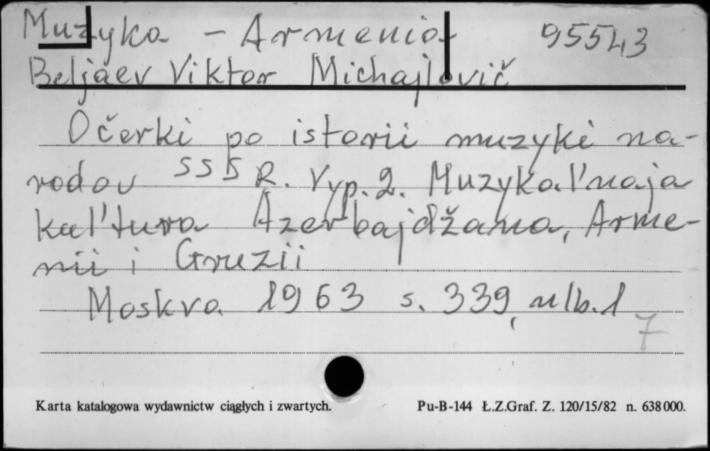 Muzyka - Armenia 95543
Beljaev Viktor Michajlovič
Očerki po istorii muzyki na-
rodov SSSR. Vyp. 2. Muzykal'naja
kul'tura Azerbajdžana, Arme-
nii i Gruzii
Moskva 1963 s. 339, nlb. 1
7
Karta katalogowa wydawnictw ciągłych i zwartych. Pu-B-144 Ł.Z.Graf. Z. 120/15/82 n. 638000.